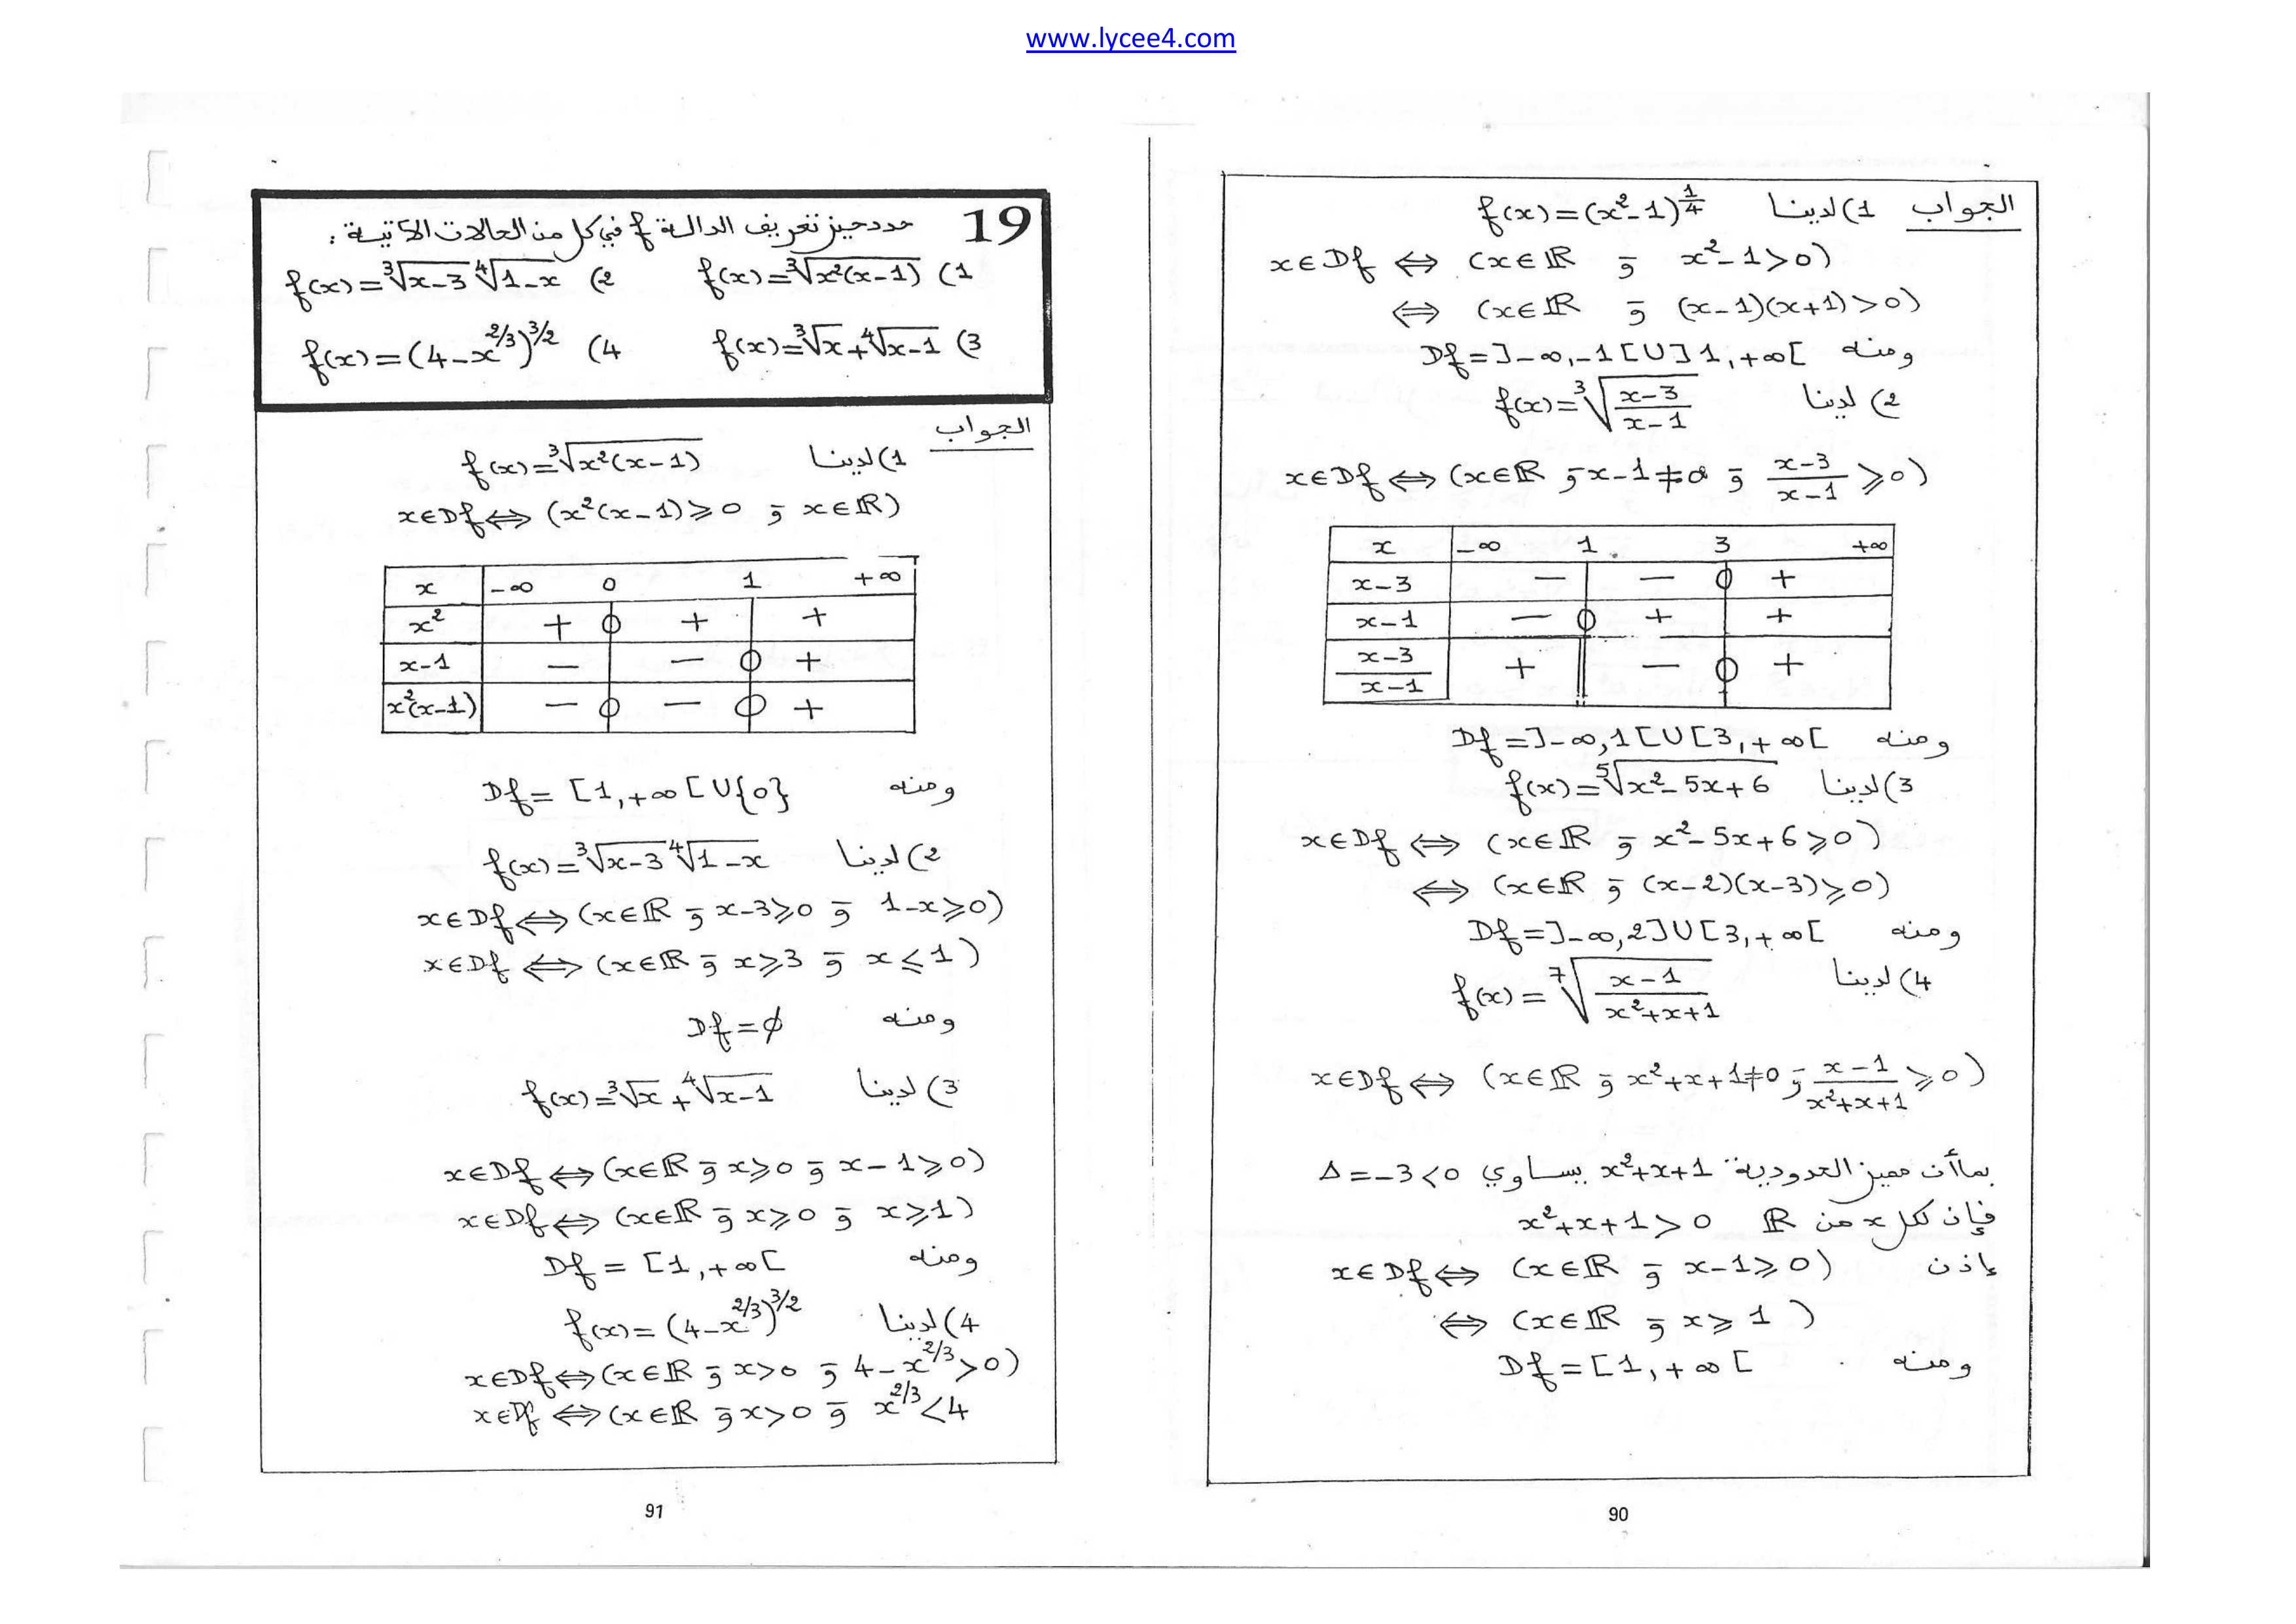 www.lycee4.com
الجواب 1) لدينا f(x)=(x²-1)^¼
x∈Df ⇔ (x∈ℝ و x²-1>0)
⇔ (x∈ℝ و (x-1)(x+1)>0)
ومنه Df=]-∞,-1[∪]1,+∞[
2) لدينا f(x)=∛((x-3)/(x-1))
x∈Df ⇔ (x∈ℝ و x-1≠0 و (x-3)/(x-1) ⩾0)
x -∞ 1 3 +∞
x-3 − − 0 +
x-1 − 0 + +
(x-3)/(x-1) + || − 0 +
ومنه Df=]-∞,1[∪[3,+∞[
3) لدينا f(x)=⁵√(x²-5x+6)
x∈Df ⇔ (x∈ℝ و x²-5x+6⩾0)
⇔ (x∈ℝ و (x-2)(x-3)⩾0)
ومنه Df=]-∞,2]∪[3,+∞[
4) لدينا f(x)=⁷√((x-1)/(x²+x+1))
x∈Df ⇔ (x∈ℝ و x²+x+1≠0 و (x-1)/(x²+x+1) ⩾0)
بما أن مميز الحدودية x²+x+1 يساوي Δ=-3<0
فإن لكل x من ℝ x²+x+1>0
إذن x∈Df ⇔ (x∈ℝ و x-1⩾0)
⇔ (x∈ℝ و x⩾1)
ومنه Df=[1,+∞[
90
19 حدد حيز تعريف الدالة f في كل من الحالات الآتية :
1) f(x)=∛(x²(x-1)) 2) f(x)=∛(x-3) ∜(1-x)
3) f(x)=∛x+∜(x-1) 4) f(x)=(4-x^2/3)^3/2
الجواب
1) لدينا f(x)=∛(x²(x-1))
x∈Df ⇔ (x²(x-1)⩾0 و x∈ℝ)
x -∞ 0 1 +∞
x² + 0 + +
x-1 − − 0 +
x²(x-1) − 0 − 0 +
ومنه Df=[1,+∞[∪{0}
2) لدينا f(x)=∛(x-3) ∜(1-x)
x∈Df ⇔ (x∈ℝ و x-3⩾0 و 1-x⩾0)
x∈Df ⇔ (x∈ℝ و x⩾3 و x⩽1)
ومنه Df=∅
3) لدينا f(x)=∛x+∜(x-1)
x∈Df ⇔ (x∈ℝ و x⩾0 و x-1⩾0)
x∈Df ⇔ (x∈ℝ و x⩾0 و x⩾1)
ومنه Df=[1,+∞[
4) لدينا f(x)=(4-x^2/3)^3/2
x∈Df ⇔ (x∈ℝ و x>0 و 4-x^2/3>0)
x∈Df ⇔ (x∈ℝ و x>0 و x^2/3<4
91